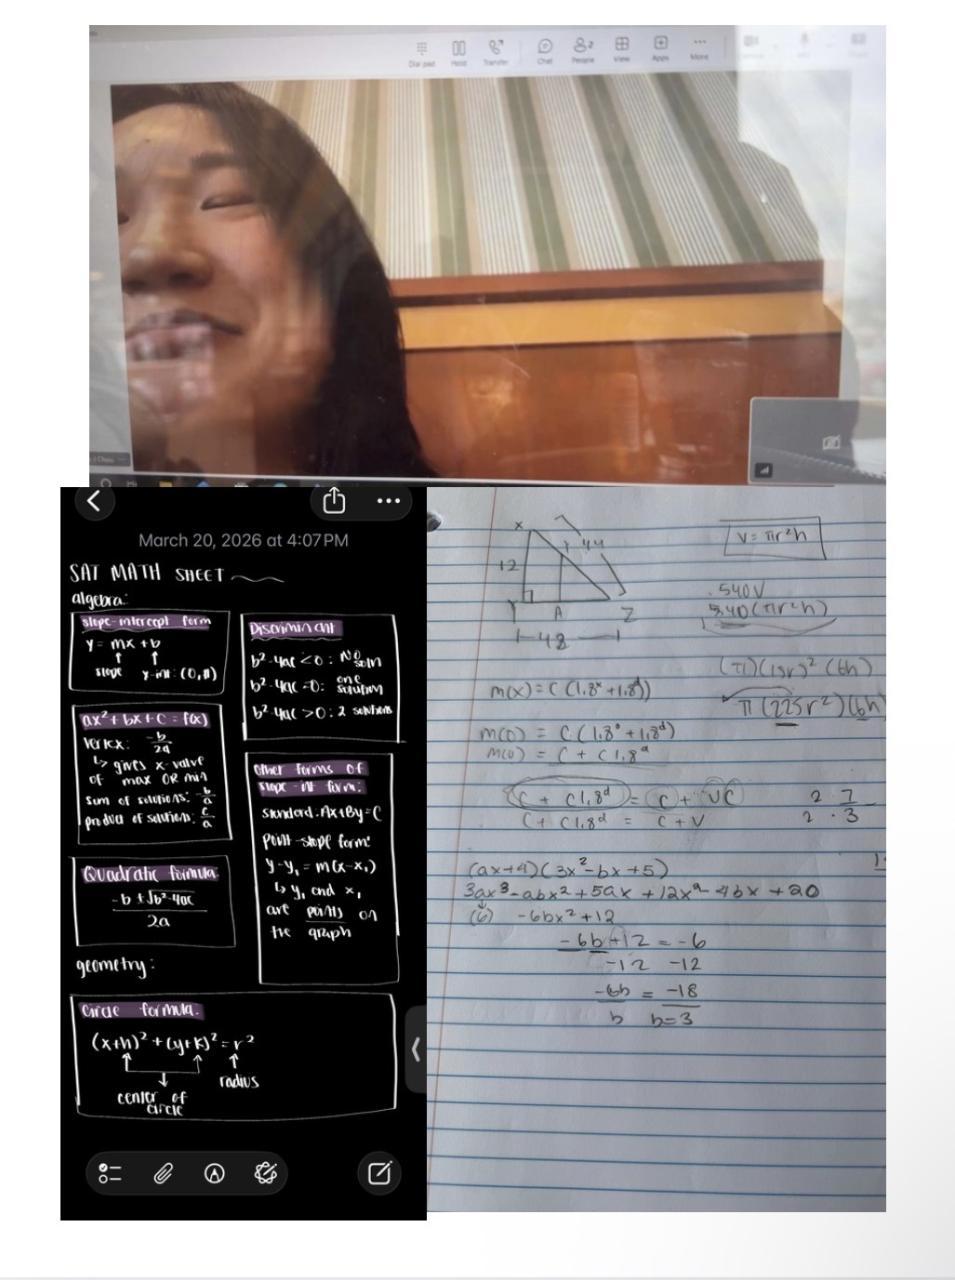 Dial pad
Hold
Transfer
Chat
People
View
Apps
More
March 20, 2026 at 4:07 PM
SAT MATH SHEET
algebra:
slope-intercept form
y = mx + b
slope y-int: (0, #)
Discriminant
b²-4ac < 0 : No soln
b²-4ac = 0: one solution
b²-4ac > 0: 2 solutions
ax² + bx + c = f(x)
vertex: -b/2a
↳ gives x-value
of max OR min
sum of solutions: -b/a
product of solutions: c/a
other forms of
slope-int form:
standard: Ax+By=C
point-slope form:
y-y₁ = m(x-x₁)
↳ y₁ and x₁
are points on
the graph
Quadratic formula:
-b ± √b²-4ac
2a
geometry:
circle formula:
(x+h)² + (y+k)² = r²
radius
center of
circle
x
44
12
Y A Z
48
V = πr²h
.540V
(πr²h)
(π)(15r)² (6h)
π (225r²)(6h)
m(0) = C + C1.8ᵈ
C + C1.8ᵈ = C + VC
C + C1.8ᵈ = C + V
2 · 7
2 · 3
(ax+4)(3x²-bx+5)
3ax³-abx²+5ax+12x²-4bx+20
(6) -6bx²+12
-6b+12 = -6
-12 -12
-6b = -18
b b=3